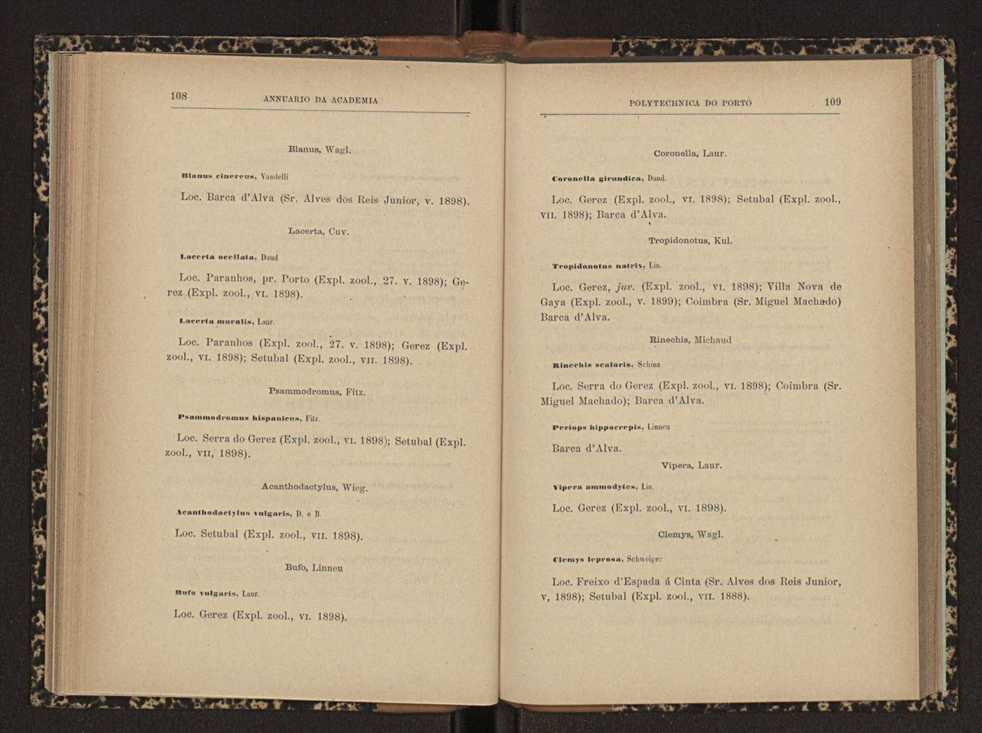 108
ANNUARIO DA ACADEMIA
Blanus, Wagl.
Blanus cinereus, Vandelli
Loc. Barca d'Alva (Sr. Alves dos Reis Junior, v. 1898).
Lacerta, Cuv.
Lacerta ocellata, Daud
Loc. Paranhos, pr. Porto (Expl. zool., 27. v. 1898); Ge-
rez (Expl. zool., VI. 1898).
Lacerta muralis, Laur.
Loc. Paranhos (Expl. zool., 27. v. 1898); Gerez (Expl.
zool., VI. 1898); Setubal (Expl. zool., VII. 1898).
Psammodromus, Fitz.
Psammodromus hispanicus, Fitz.
Loc. Serra do Gerez (Expl. zool., VI. 1898); Setubal (Expl.
zool., VII, 1898).
Acanthodactylus, Wieg.
Acanthodactylus vulgaris, D. e B.
Loc. Setubal (Expl. zool., VII. 1898).
Bufo, Linneu
Bufo vulgaris, Laur.
Loc. Gerez (Expl. zool., VI. 1898).
POLYTECHNICA DO PORTO
109
Coronella, Laur.
Coronella girundica, Daud.
Loc. Gerez (Expl. zool., VI. 1898); Setubal (Expl. zool.,
VII. 1898); Barca d'Alva.
Tropidonotus, Kul.
Tropidonotus natrix, Lin.
Loc. Gerez, juv. (Expl. zool., VI. 1898); Villa Nova de
Gaya (Expl. zool., v. 1899); Coimbra (Sr. Miguel Machado)
Barca d'Alva.
Rinechis, Michaud
Rinechis scalaris, Schinz
Loc. Serra do Gerez (Expl. zool., VI. 1898); Coimbra (Sr.
Miguel Machado); Barca d'Alva.
Periops hippocrepis, Linneu
Barca d'Alva.
Vipera, Laur.
Vipera ammodytes, Lin.
Loc. Gerez (Expl. zool., VI. 1898).
Clemys, Wagl.
Clemys leprosa, Schweiger
Loc. Freixo d'Espada á Cinta (Sr. Alves dos Reis Junior,
v, 1898); Setubal (Expl. zool., VII. 1888).